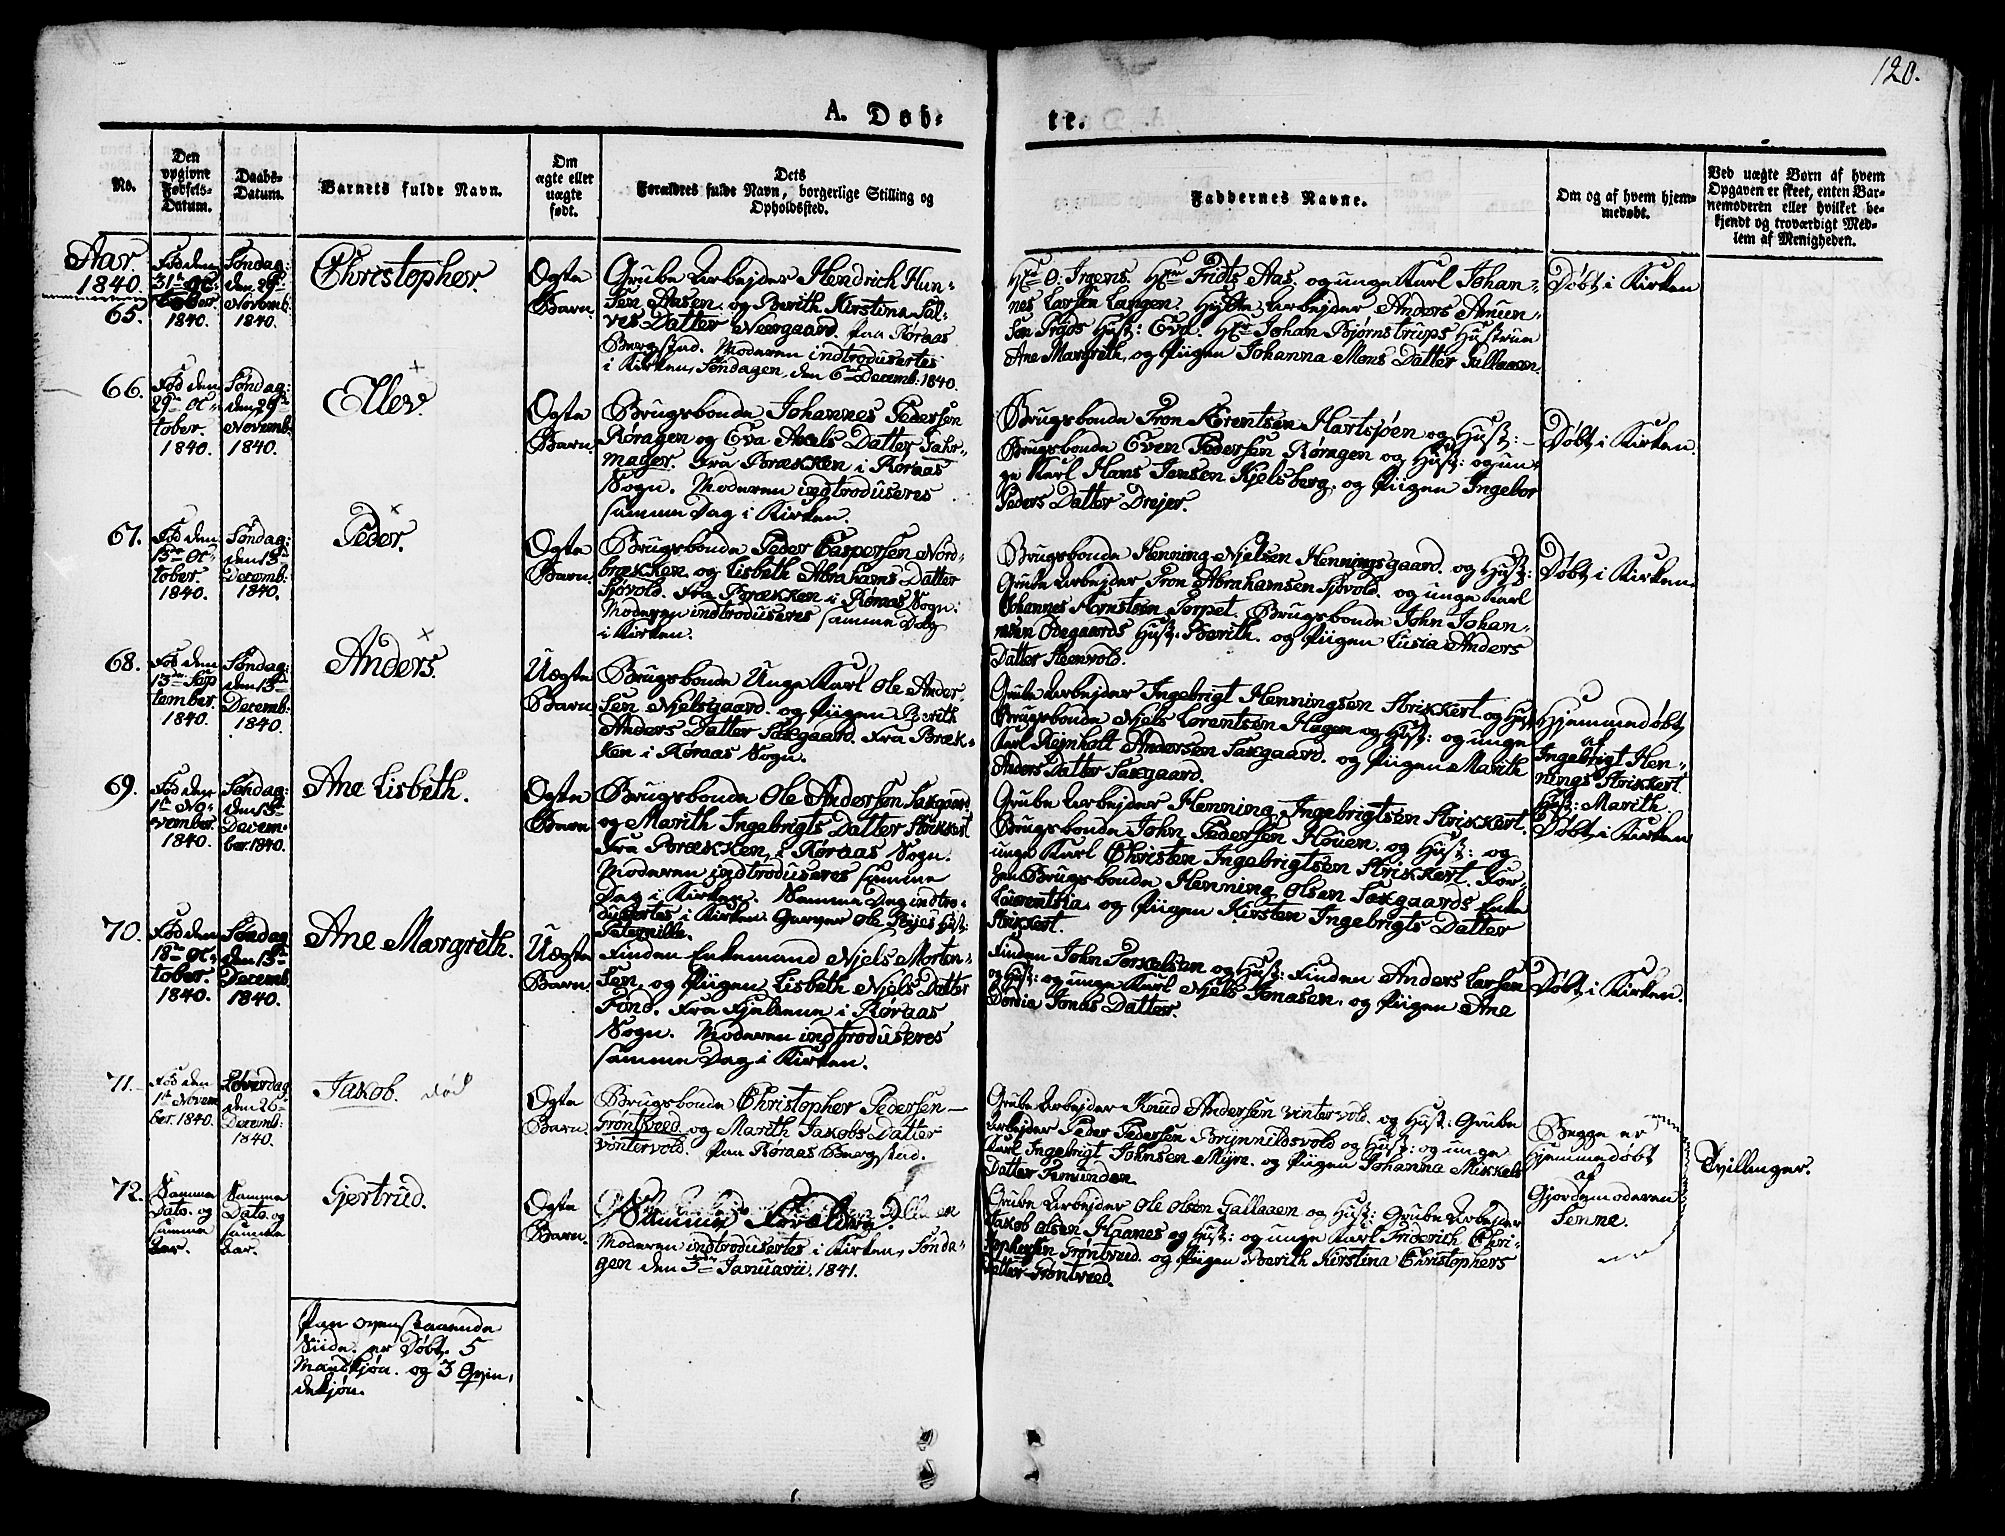 120.
A. Døb-
te.
No.
Den
opgivne
Fødsels-
Datum.
Daabs-
Datum.
Barnets fulde Navn.
Om
ægte eller
uægte
født.
Dets
Forældres fulde Navn, borgerlige Stilling og
Opholdssted.
Faddernes Navne.
Om og af hvem hjem-
medøbt.
Ved uægte Børn af hvem
Opgaven er skeet, enten Bar-
nemoderen eller hvilket be-
kjendt og troværdigt Med-
lem af Menigheden.
Aar
1840.
65.
Fød den
31te Oc-
tober.
1840.
Søndag:
den 29de
Novemb:
1840.
Christopher.
Ægte
Barn.
Grube Arbejder Hendrich Hun-
sen Aasen. og Berith Kirstina Sal-
ves Datter Neergaard. paa Røraas
Bergstad. Moderen indtrodusertes
i Kirken, Søndagen, den 6te Decemb: 1840.
O: Irgens. Fridts Aas. og unge Karl Johan-
nes Larsen Langen, Hytte Arbejder Anders Amun-
sen Hust: Eva. Johan Bjørnstrups Hustrue
Ane Margreth, og Piigen Johanna Mons Datter Gullaasen.
Døbt i Kirken
66.
Fød den
29de Oc-
tober.
1840.
Søndag:
den 29de
Novemb:
1840.
Ellev.
Ægte
Barn.
Brugsbonde Johannes Pedersen
Røragen og Eva Axels Datter Sahr-
mager. Fra Brækken i Røraas
Sogn. Moderen indtroduseres
samme Dag i Kirken.
Brugsbonde Tron Arentsen Hartsjøen og Hust: -
Brugsbonde Even Pedersen Røragen og Hust: og un-
ge Karl Hans Jensen Kjelsberg. og Piigen Ingebor
Peders Datter Drejer.
Døbt i Kirken.
67.
Fød den
15de Oc-
tober.
1840.
Søndag:
den 13de
Decemb:
1840.
Peder.
Ægte
Barn.
Brugsbonde Peder Caspersen Nord-
brækken. og Lisbeth Abrahams Datter
Sjøvold. Fra Brækken i Røraas Sogn:
Moderen indtroduseres samme Dag
i Kirken.
Brugsbonde Henning Njelsen Henningsgaard. og Hust:
Grube Arbejder Tron Abrahamsen Sjøvold. og unge Karl
Johannes Arntsen Torpet. Brugsbonde John Johan-
nsen Ødegaards Hust: Berith. og Piigen Lusia Anders
Datter Steenvold.
Døbt i Kirken
68.
Fød den
13de Sep
tember.
1840.
Søndag:
den 13de
Decemb:
1840.
Anders.
Uægte
Barn
Brugsbonde Unge Karl Ole Ander
sen Njelsgaard. og Piigen Berith
Anders Datter Saxgaard. Fra Bræk-
ken i Røraas Sogn.
Grube Arbejder Ingebrigt Henningsen Strikkert. og Hust
Brugsbonde Njels Lorentsen Hagen og Hust: og unge
Karl Rejnholt Andersen Saxgaard. og Piigen Marith
Anders Datter Saxgaard.
Hjemmedøbt
af
Ingebrigt Hen-
nings Strikkert.
Hust: Marith
69.
Fød den
1te No-
vember.
1840.
Søndag:
den 13de
Decem-
ber. 1840.
Ane Lisbeth.
Ægte
Barn
Brugsbonde Ole Andersen Saxgaard
og Marith Ingebrigts Datter Strikkert
Fra Brækken, i Røraas Sogn.
Moderen indtroduseres samme
Dag i Kirken. Samme Dag indtro-
dusertes i Kirken. Garver Ole Hust:
Grube Arbejder Henning Ingebrigtsen Strikkert.
Brugsbonde John Pedersen Houen. og Hust: og
unge Karl Christen Ingebrigtsen Strikkert. For-
hen Brugsbonde Henning Olsen Saxgaards Enke
Laurentsia. og Piigen Kirsten Ingebrigts Datter
Strikkert.
Døbt i Kirken
70.
Fød den
18de Oc-
tober.
1840.
Søndag
den 13de
Decemb.
1840.
Ane Margreth.
Uægte
Barn.
Finden Enkemand Njels Morten-
sen. og Piigen Lisbeth Njels Datter
Fond. Fra Fjeldene i Røraas
Sogn. Moderen indtroduseres
samme Dag i Kirken.
Finden John Torkelsen og Hust: Finden Anders Larsen
og Hust: og unge Karl Njels Jonasen. og Piigen Ane
Dordia Jonas Datter.
Døbt i Kirken.
71.
Fød den
1te Novem
ber. 1840.
Løverdag
den 26
Decemb:
1840.
Jakob. død
Ægte
Barn.
Brugsbonde Christopher Pedersen
Grøntveed og Marith Jakobs Datter
Vintervold. Paa Røraas Bergstad.
Grube Arbejder Knud Andersen Vintervold. og Hust: Grube
Arbejder Peder Pedersen Brynnildsvold og Hust: og unge
Karl Ingebrigt Johnsen Myre. og Piigen Johanna Mikkels
Datter Femunden
Begge er
Hjemmedøbt
af
Gjordemoderen
Semme.
Tvillinger.
72.
Samme
Dato. og
samme
Aar.
Samme
Dato. og
samme
Aar.
Gjertrud.
Ægte
Barn.
Samme Forældre.
Moderen indtrodusertes i Kirken, Sønda-
gen den 3die Januarii. 1841.
Grube Arbejder Ole Olsen Gallaaen og Hust: Grube Arbejder
Jakob Olsen Haanes og Hust: og unge Karl Friderich Chri-
stophersen Grøntveed. og Piigen Berith Kirstina Christophers
Datter Grøntveed.
Paa ovenstaaende
Siide. er Døbt. 5
Mandkjøn. og 3 Qvin-
dekjøn.